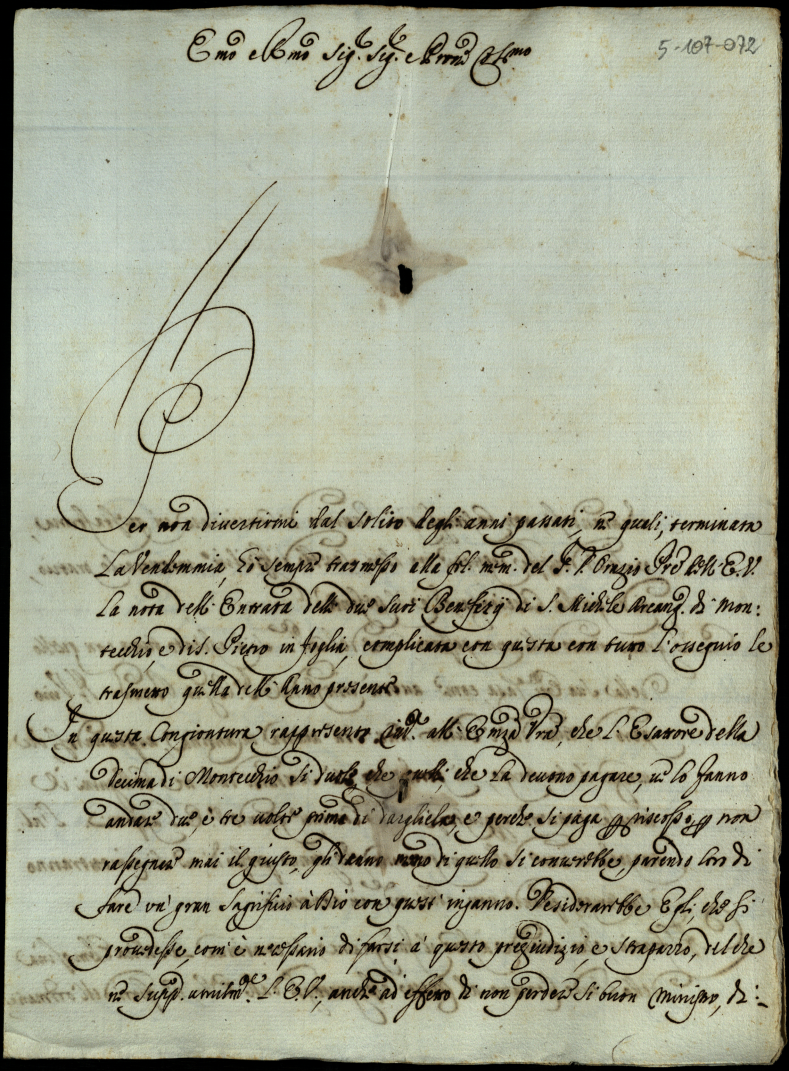 Emo e Rmo Sig.r Sig.r e Pron Colmo
5-107-072
Per non divertirmi dal solito degli anni passati, ne quali, terminata
La Vendemmia, hò sempre trasmesso alla fel. mem. del P. D. Orazio Pre dell' E. V.
La nota dell' Entrata delli due Suoi Beneficij di S. Michele Arcang. di Mon:
tecchio, e di S. Pietro in foglia, complicata con questa con tutto l'ossequio le
trasmetto quella dell' Anno presente.
In questa Congiontura rappresento all' Emza Vra, che L'Esattore della
Decima di Montecchio Si duole, che quelli, che La devono pagare, ne lo fanno
andare due, e tre volte prima di dargliela, e perche si paga riscosso, non
rassegnar mai il giusto, gli danno meno di quello si converebbe, parendo loro di
fare un' gran Sagrificio à Dio con questi inganno. Desiderarebbe Egli, che si
provedesse, com' è necessario di farsi à questo pregiudizio, e strapazzo, del che
ne L. E. V., anche ad effetto di non perdere Si buon Ministro, di:-